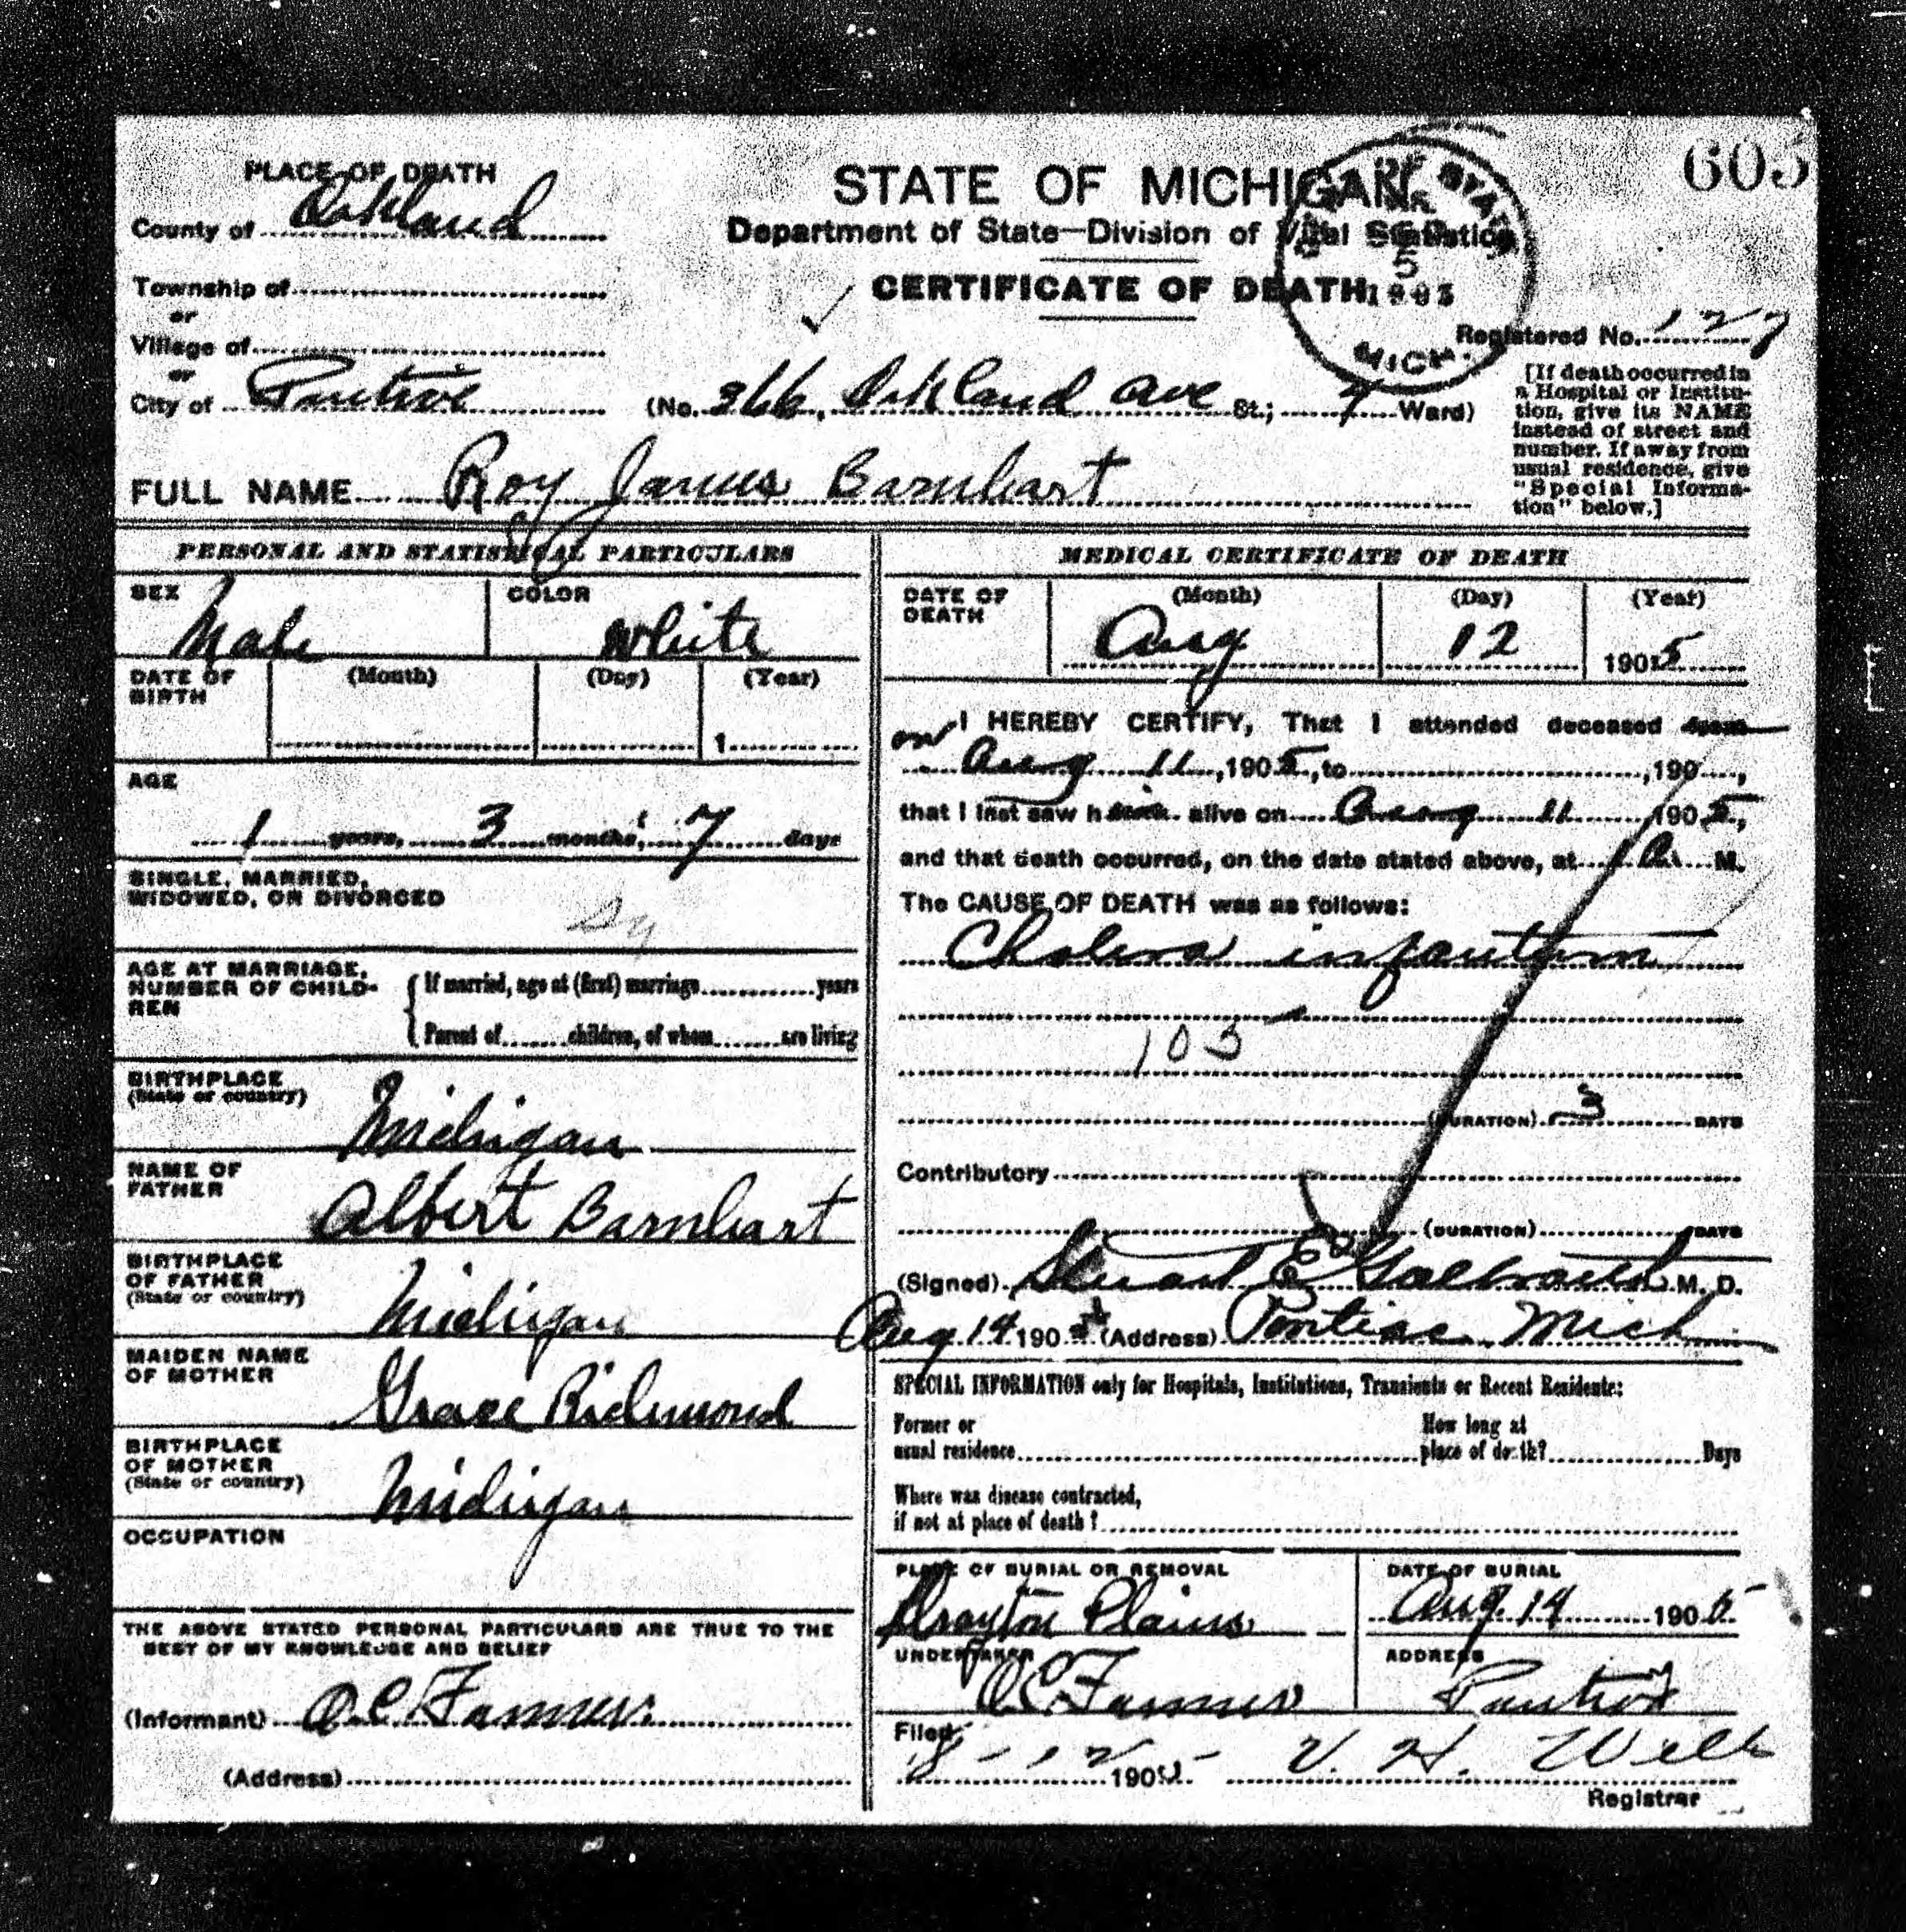 605
PLACE OF DEATH
STATE OF MICHIGAN
County of Oakland
Department of State—Division of Vital Statistics
Township of
CERTIFICATE OF DEATH
SEP 5 1905
MICH.
or
Village of
Registered No. 127
or
City of Pontiac (No. 366, Oakland Ave St.; Ward)
[If death occurred in
a Hospital or Institu-
tion, give its NAME
instead of street and
number. If away from
usual residence, give
"Special Informa-
tion" below.]
FULL NAME Roy James Barnhart
PERSONAL AND STATISTICAL PARTICULARS
SEX
Male
COLOR
White
DATE OF
BIRTH
(Month) (Day) (Year)
1
AGE
1 years, 3 months, 7 days
SINGLE, MARRIED,
WIDOWED, OR DIVORCED
AGE AT MARRIAGE,
NUMBER OF CHILD-
REN
If married, age at (first) marriage years
Parent of children, of whom are living
BIRTHPLACE
(State or country)
Michigan
NAME OF
FATHER
Albert Barnhart
BIRTHPLACE
OF FATHER
(State or country)
Michigan
MAIDEN NAME
OF MOTHER
Grace Richmond
BIRTHPLACE
OF MOTHER
(State or country)
Michigan
OCCUPATION
THE ABOVE STATED PERSONAL PARTICULARS ARE TRUE TO THE
BEST OF MY KNOWLEDGE AND BELIEF
(Informant) O.C. Farmer
(Address)
MEDICAL CERTIFICATE OF DEATH
DATE OF
DEATH
(Month) (Day) (Year)
Aug 12 1905
I HEREBY CERTIFY, That I attended deceased from
on Aug 11, 1905, to , 190 ,
that I last saw him alive on Aug 11 1905,
and that death occurred, on the date stated above, at 1 A. M.
The CAUSE OF DEATH was as follows:
Cholera infantum
105
(DURATION) 3 DAYS
Contributory
(DURATION) DAYS
(Signed) Stuart E Galbraith M. D.
Aug 14 1905 (Address) Pontiac Mich
SPECIAL INFORMATION only for Hospitals, Institutions, Transients or Recent Residents:
Former or
usual residence
How long at
place of death? Days
Where was disease contracted,
if not at place of death?
PLACE OF BURIAL OR REMOVAL
Drayton Plains
DATE OF BURIAL
Aug. 14 1905
UNDERTAKER
O.C. Farmer
ADDRESS
Pontiac
Filed
8-12 1905 V. H. Wells
Registrar